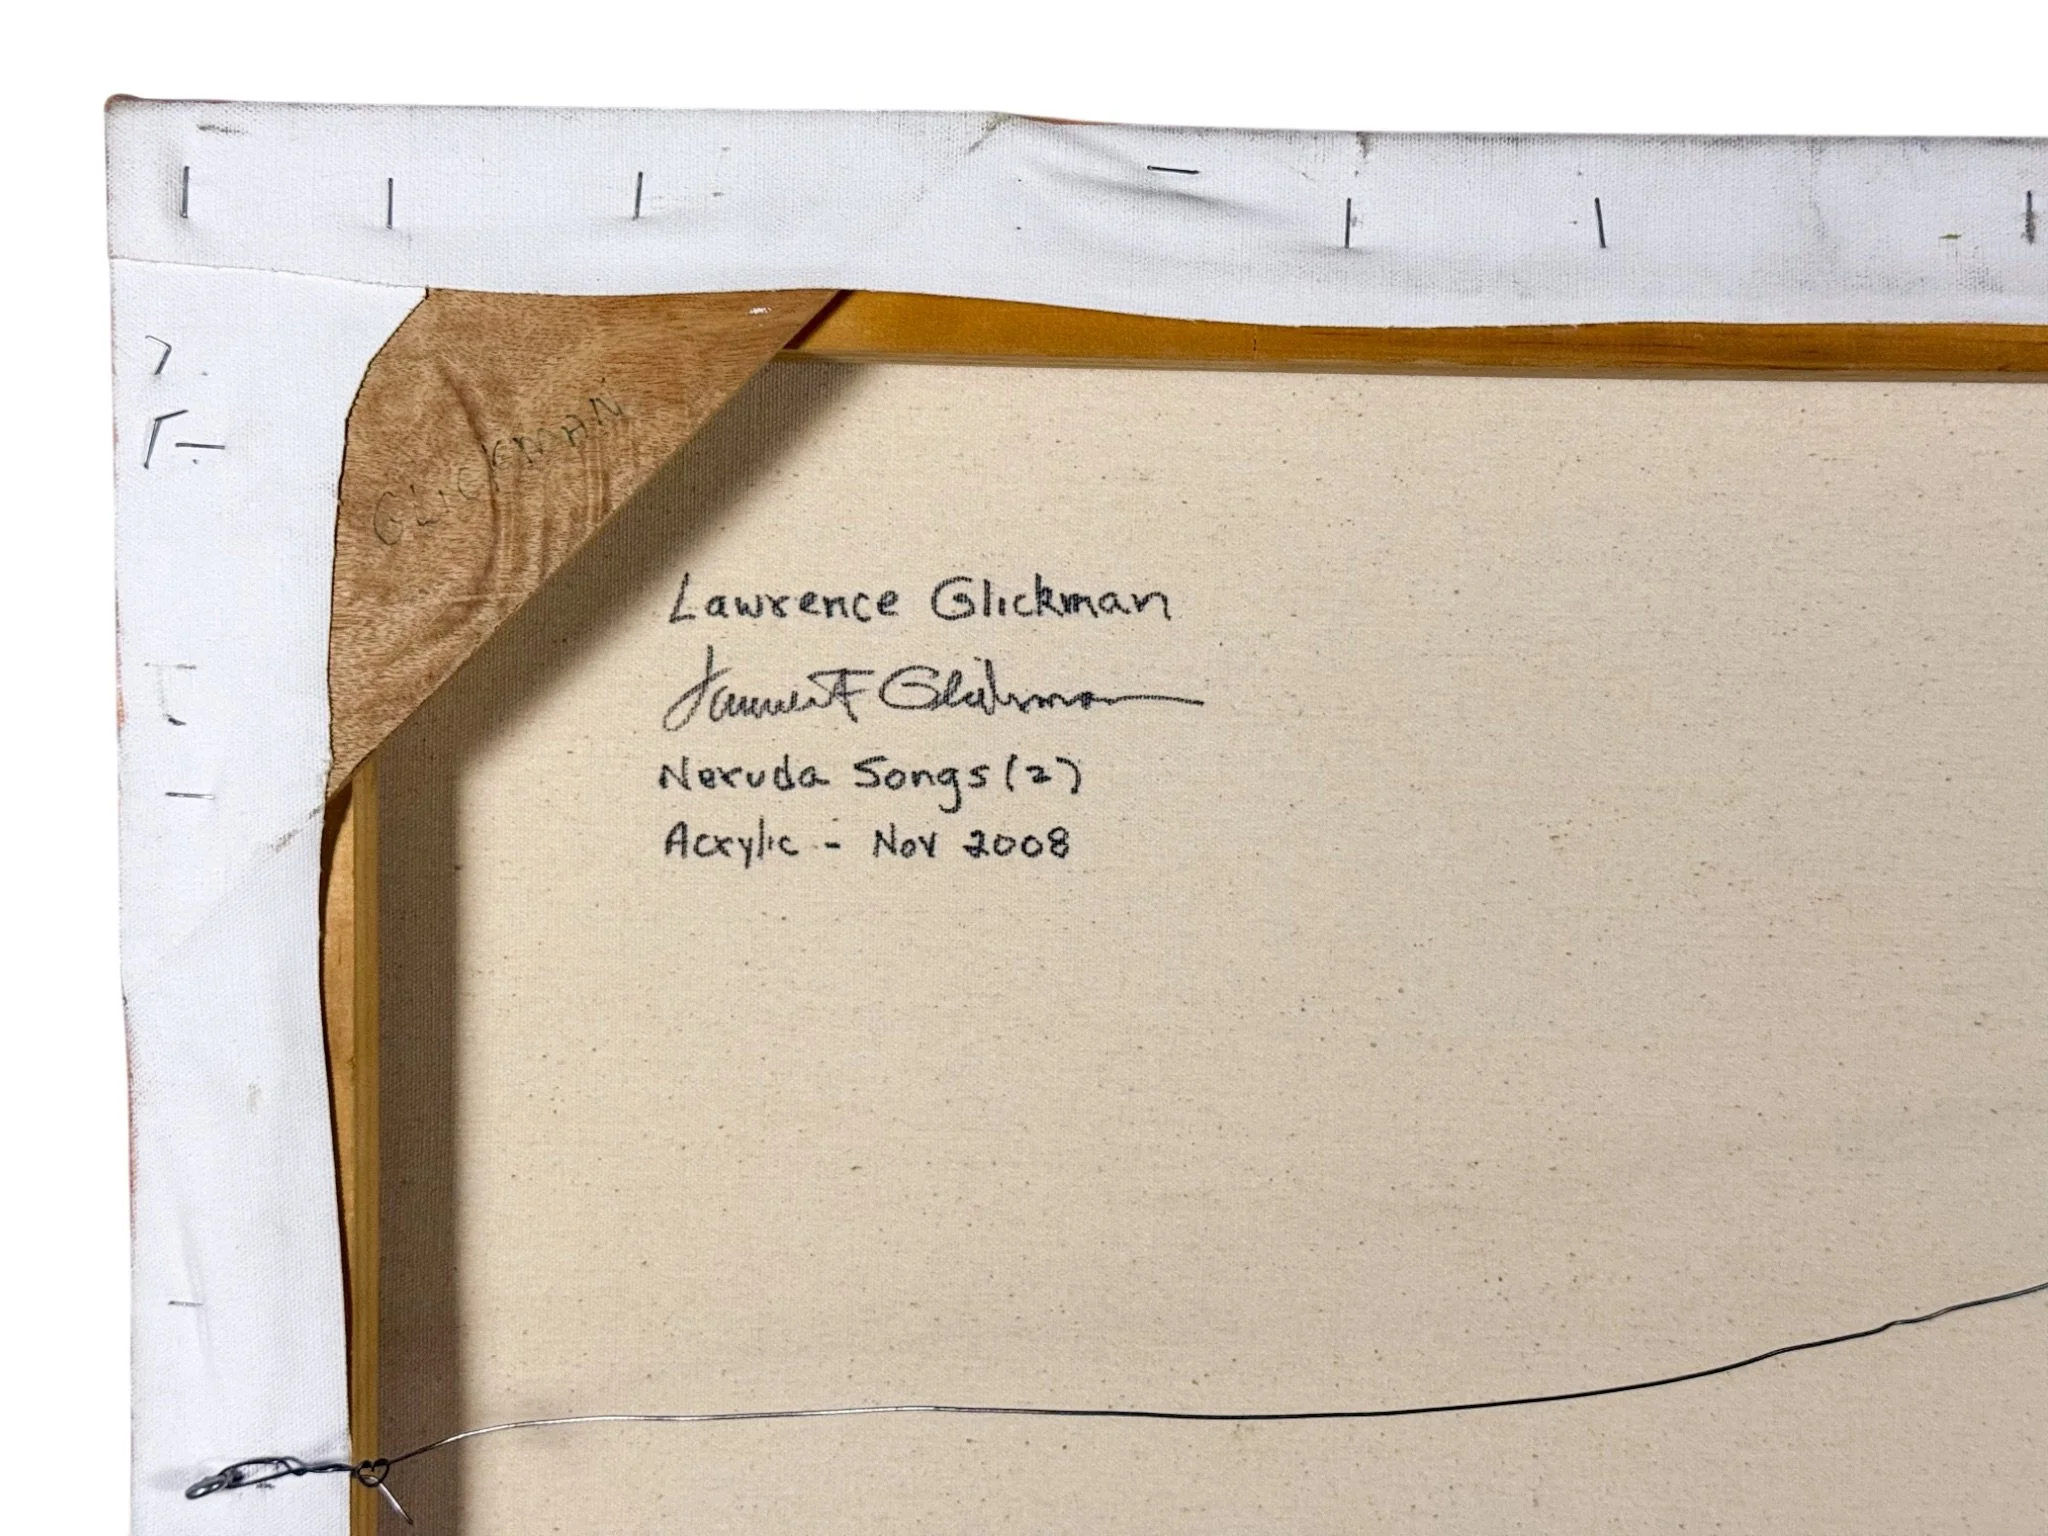 GLICKMAN
Lawrence Glickman
Lawrence F Glickman
Neruda Songs (2)
Acrylic - Nov 2008